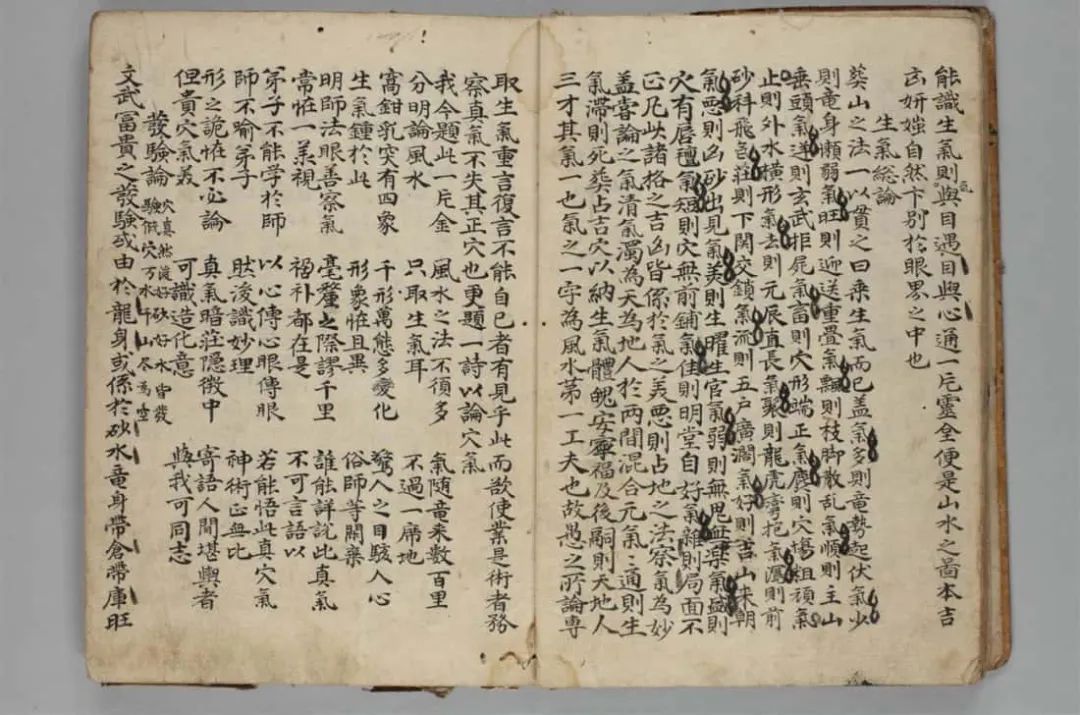 能識生氣則與目遇目與心通一片靈全便是山水之啚本吉
氣
㐫妍媸自然卞別於眼界之中也
生氣総論
葬山之法一以貫之曰乗生氣而已盖氣多則竜勢起伏氣少
則竜身懶弱氣旺則迎送重疊氣飄則枝脚散乱氣順則主山
垂頭氣逆則玄武拒屍氣畜則穴形端正氣塵則穴傷粗頑氣
止則外水横形氣去則元辰直長氣聚則龍虎灣抱氣濁則前
砂科飛氣莊則下関交鎖氣流則五戸廣濶氣好則吉山来朝
氣悪則凶砂出見氣美則生曜生官氣弱則無鬼無楽氣盛則
穴有唇氊氣短則穴無前鋪氣佳則明堂自好氣雜則局面不
正凡此諸格之吉凶皆係於氣之美悪則占地之法察氣為妙
盖甞論之氣清氣濁為天為地人於両間混合元氣〻通則生
氣滞則死葬占吉穴以納生氣體魄安寧福及後嗣則天地人
三才其氣一也氣之一字為風水苐一工夫也故愚之所論専
取生氣重言復言不能自已者有見乎此而欲使業是術者務
察真氣不失其正穴也更題一詩以論穴氣
我今題此一片金 風水之法不湏多 氣随竜来数百里
分明論風水 只取生氣耳 不過一席地
窩鉗乳突有四象 千形萬態多變化 驚人之目駭人心
生氣鍾於此 形象恠且異 俗師等閑棄
明師法眼善察氣 毫釐之際謬千里 誰能詳說此真氣
常恠一㨾視 禍福都在是 不可言語以
苐子不能学於師 以心傳心眼傳眼 若能悟此真穴氣
師不喻苐子 然後識妙理 神術正無比
形之詭恠不必論 真氣暗莊隱微中 寄語人間堪輿者
但貴穴氣美 可識造化意 與我可同志
發驗論
穴真然後好砂好水皆發
驗假穴万水千山尽為虛
文武冨貴之發驗或由於龍身或係於砂水竜身帶倉帶庫旺